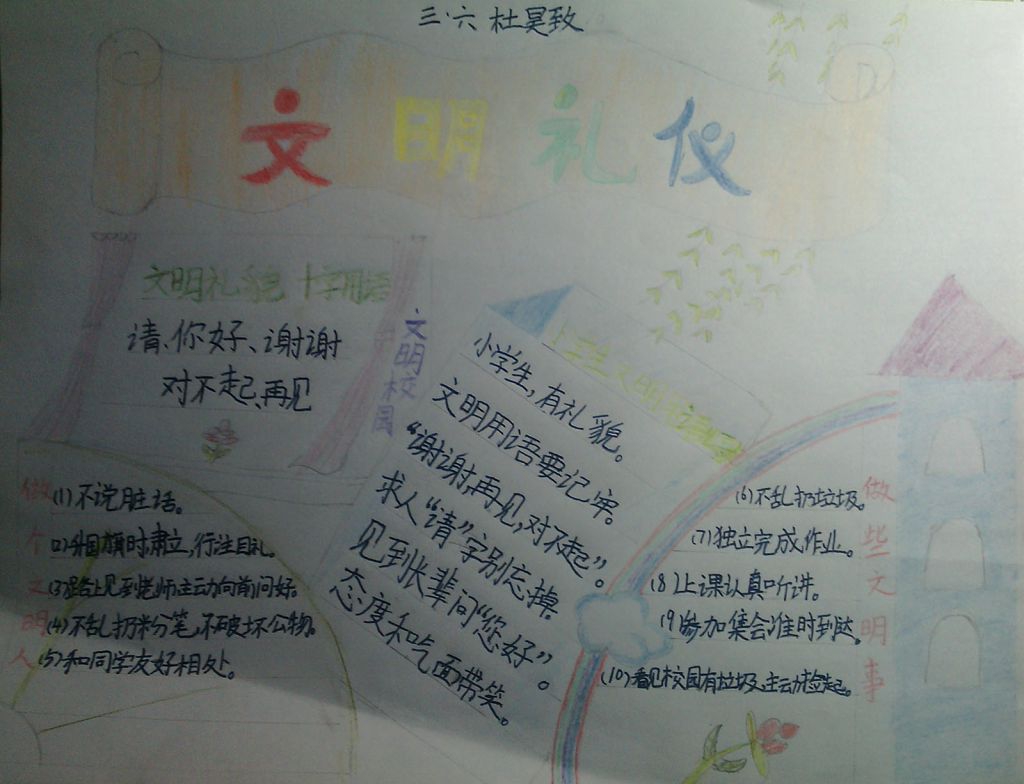 三·六 杜昊致
文明礼仪
文明礼貌 十字用语
请、你好、谢谢
对不起、再见
文明校园
小学生文明用语
小学生，有礼貌。
文明用语要记牢。
“谢谢，再见，对不起”。
求人“请”字别忘掉。
见到长辈问“您好”。
态度和气面带笑。
做个文明人
(1)不说脏话。
(2)升国旗时肃立，行注目礼。
(3)路上见到老师主动向前问好。
(4)不乱扔粉笔，不破坏公物。
(5)和同学友好相处。
做些文明事
(6)不乱扔垃圾。
(7)独立完成作业。
(8)上课认真听讲。
(9)参加集会准时到达。
(10)看见校园有垃圾主动捡起。